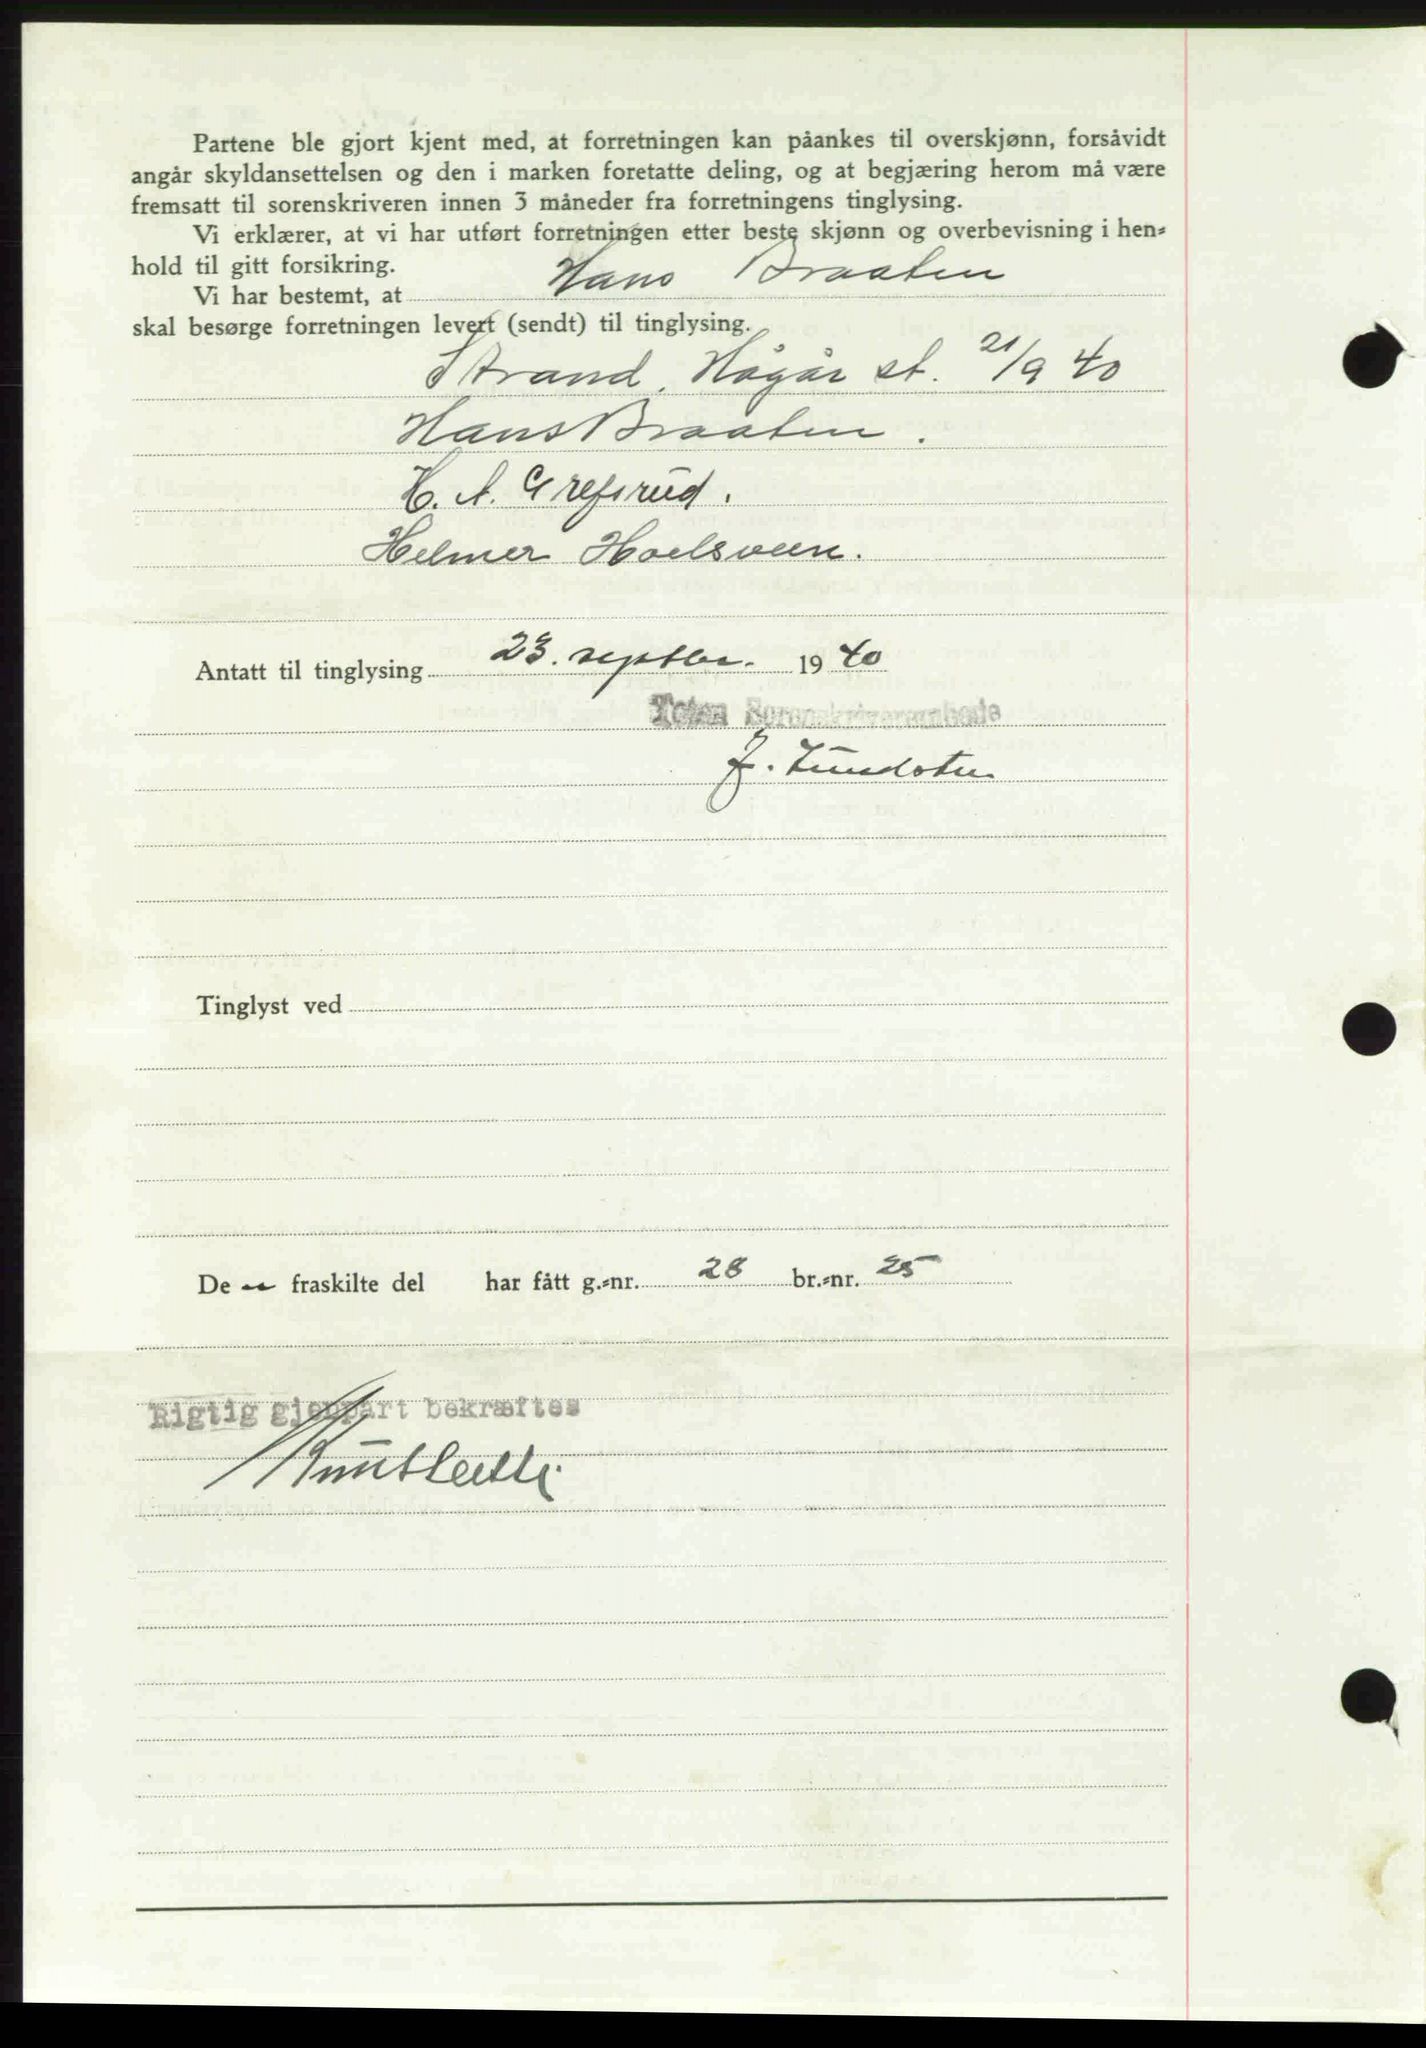 Partene ble gjort kjent med, at forretningen kan påankes til overskjønn, forsåvidt
angår skyldansettelsen og den i marken foretatte deling, og at begjæring herom må være
fremsatt til sorenskriveren innen 3 måneder fra forretningens tinglysing.
Vi erklærer, at vi har utført forretningen etter beste skjønn og overbevisning i hen-
hold til gitt forsikring.
Vi har bestemt, at Hans Braaten
skal besørge forretningen levert (sendt) til tinglysing.
Strand, Hågår st. 21/9 40
Hans Braaten.
H. A. Grefsrud.
Helmer Hoelsveen.
Antatt til tinglysing 23. septbr. 1940
Toten Sorenskriverembede
J. Lundsten
Tinglyst ved
De n fraskilte del har fått g.-nr. 28 br.-nr. 25
Rigtig gjenpart bekræftes